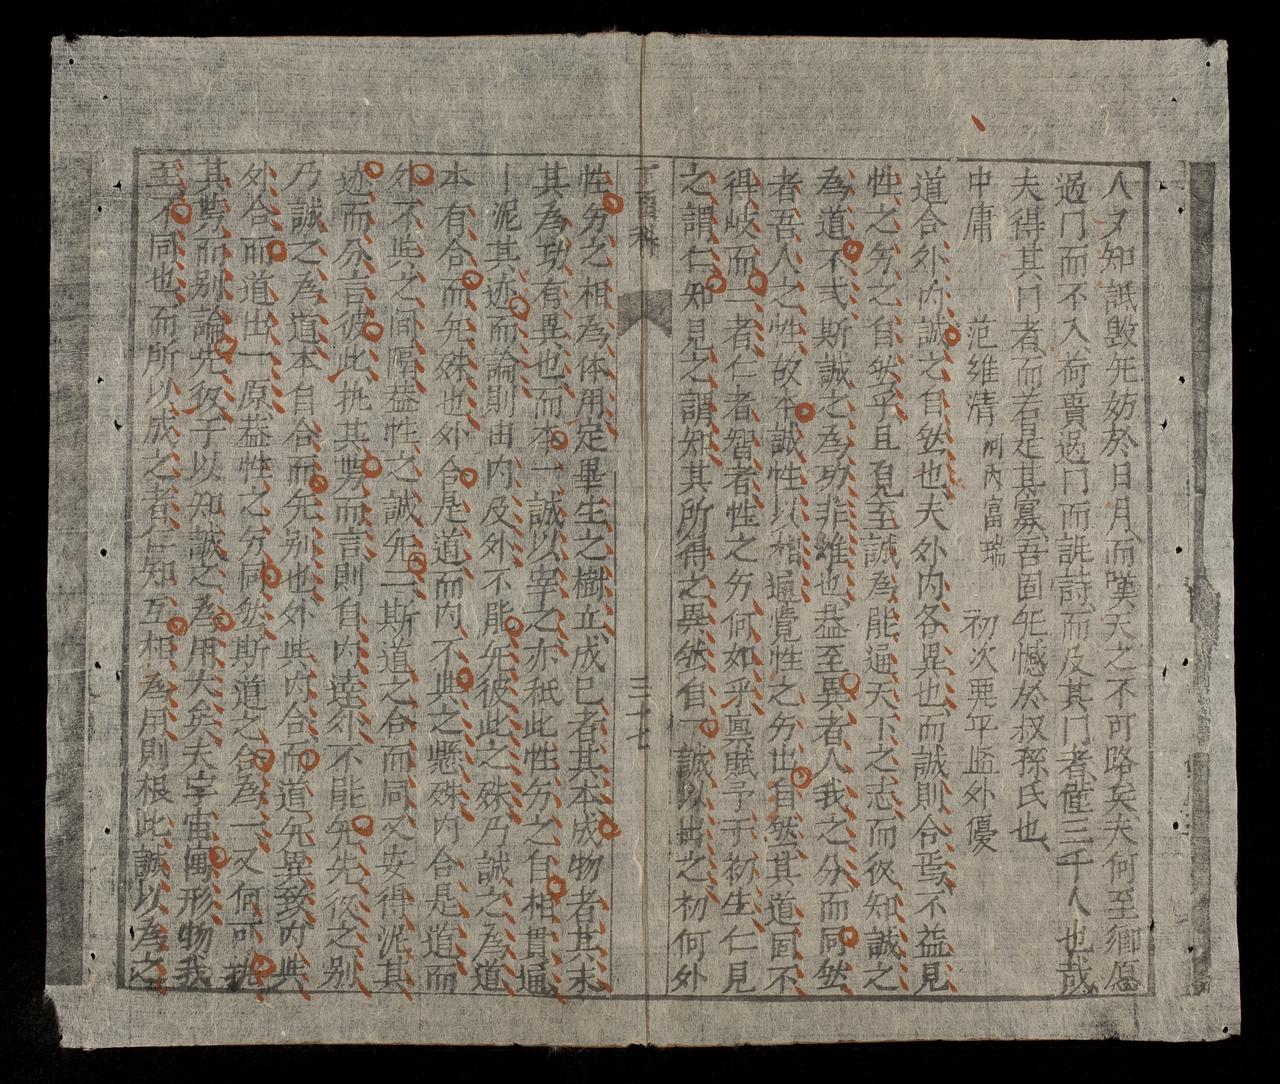 人才知詆毀无妨於日月而嘆天之不可略矣夫何至鄉愿
過門而不入荷蕢過门而誰詩而及其門者僅三千人也哉
夫得其门者而若是其寡吾固无憾於叔孫氏也
中庸 范維清 河內富瑞 初次 平 外優
道合外內誠之自然也夫外內各異也而誠則合焉不益見
性之分之自然乎且見至誠為能通天下之志而後知誠之
為道不弍斯誠之為功非雖也益至異者人我之分而同然
者吾人之性故本誠性以相通覺性之分也自然其道固不
得岐而二者仁者智者性之分何如乎真賦予于初生仁見
之謂仁知見之謂知其所得之異然自一誠以出之初何外
三十七
性分之相為体用定畢生之樹立成己者其本成物者其末
其為功有異也而本一誠以宰之亦秖此性分之自相貫通
泥其迹而論則由內及外不能无彼此之殊乃誠之為道
本有合而无殊也外合是道而內不與之懸殊內合是道而
外不與之间隔益性之誠无二斯道之合而同又安得泥其
迹而分言彼此执其势而言則自內達外不能无先後之別
乃誠之為道本自合而无別也外與內合而道无異致內與
外合而道出一原益性之分同然斯道之合為一又何可執
其势而別論先後于以知誠之為用大矣夫宇宙寓形物我
至不同也而所以成之者仁知互相為用則根此誠以為之